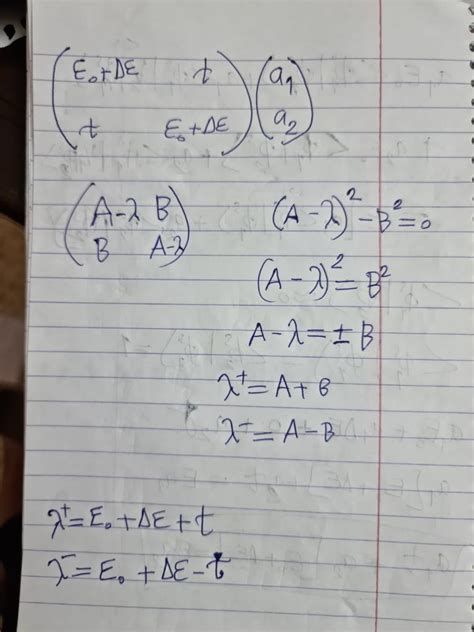 ( E₀+ΔE t ) ( a₁ )
( t E₀+ΔE ) ( a₂ )
( A-λ B )
( B A-λ )
(A-λ)² - B² = 0
(A-λ)² = B²
A-λ = ± B
λ⁺ = A + B
λ⁻ = A - B
λ⁺ = E₀ + ΔE + t
λ⁻ = E₀ + ΔE - t